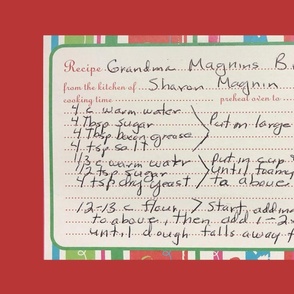 Recipe Grandma Magnins B
from the kitchen of Sharon Magnin
cooking time preheat oven to
4 c warm water
4 Tbsp sugar
4 Tbsp bacon grease
4 tsp salt
put in large
1/3 c warm water
1/2 tsp sugar
4 tsp dry yeast
put in cup
until foamy
to above
12-13 c flour
Start add
to above, then add 1-2
until dough falls away f